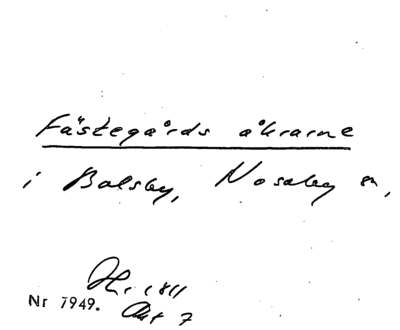 Fästegårds åkrarne
i Balsby, Nosaby sn,
Hr. 1811
Nr 7949. Akt 7